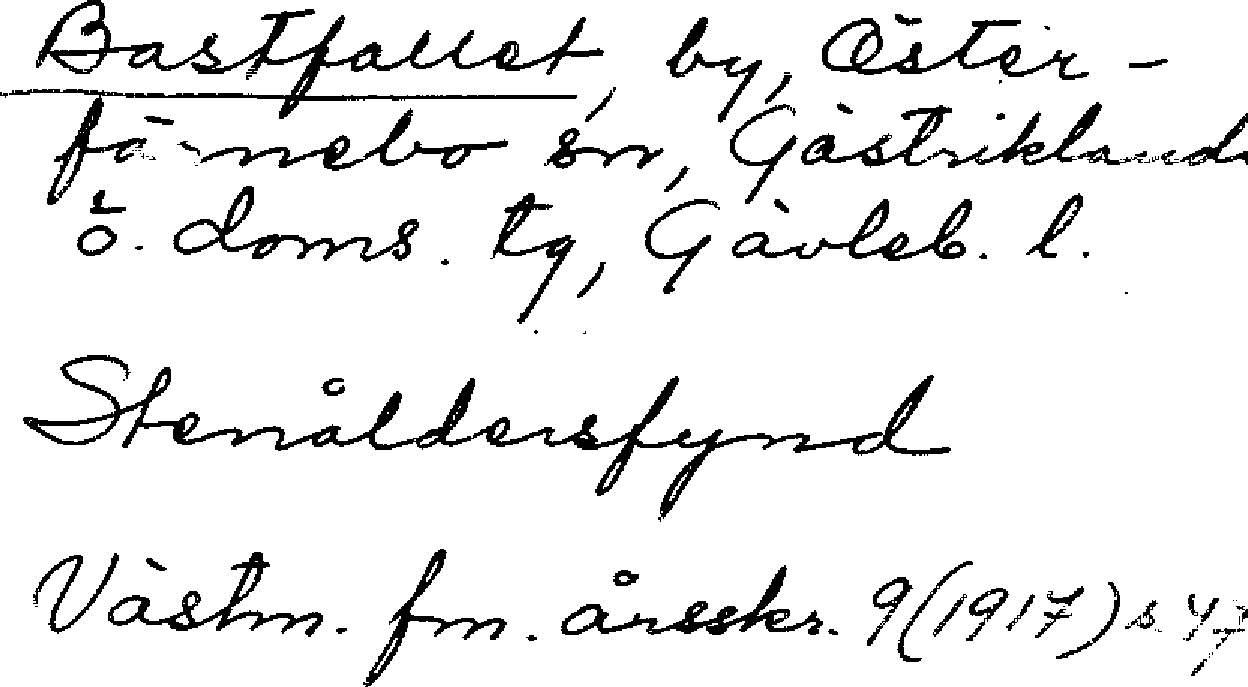 Bastfallet, by, Öster-
färnebo sn, Gästriklands
ö. doms. tg, Gävleb. l.
Stenåldersfynd
Västm. fm. årsskr. 9 (1917) s. 47